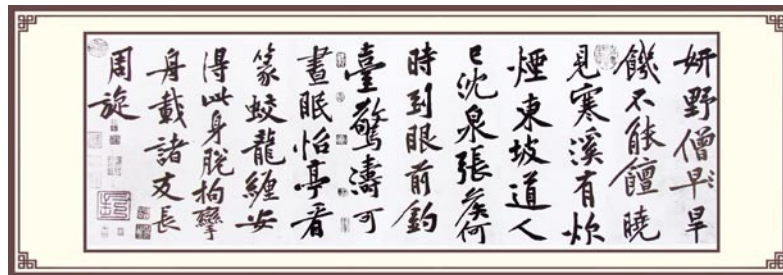 妍野僧早旱
饑不能饘曉
見寒溪有炊
煙東坡道人
已沈泉張侯何
時到眼前釣
臺驚濤可
晝眠怡亭看
篆蛟龍纏安
得此身脫拘攣
舟載諸友長
周旋